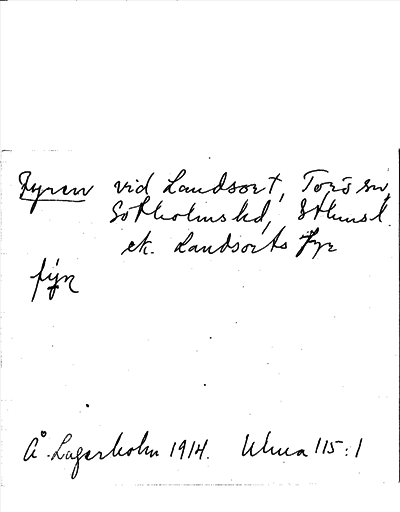 Fyren vid Landsort, Torö sn,
Sotholms hd, Sthmsl.
ek. Landsorts fyr
fýr̥
Å. Lagerholm 1914. Uhua 115:1